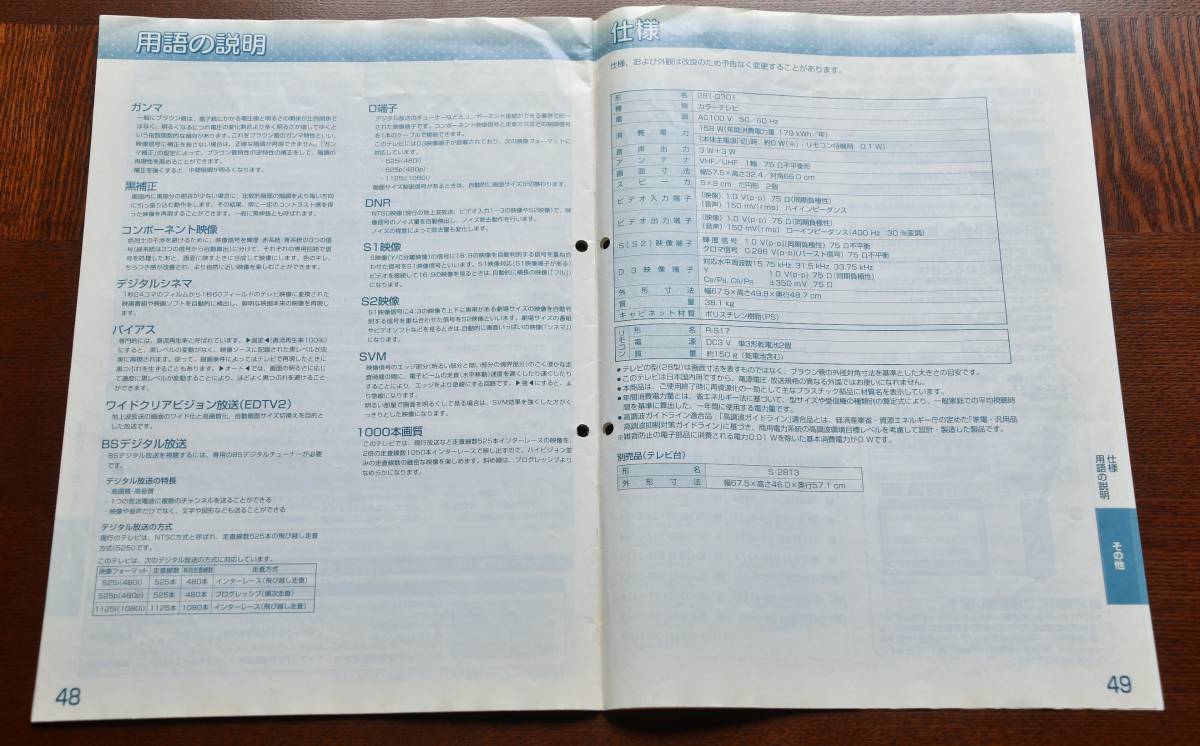 用語の説明
ガンマ
一般にブラウン管は、電子銃にかかる電圧差と明るさの関係が比例関係で
はなく、明るくなるにつれ電圧の変化割合より多く明るさが増してゆくと
いう指数関数的な傾向があります。これをブラウン管のガンマ特性といい、
映像信号に補正を施さない場合は、正確な階調が再現できません。「ガン
マ補正」の設定によって、ブラウン管特性の逆特性の補正をして、階調の
再現性を高めることができます。
補正を強くすると、中間階調が明るくなります。
黒補正
画面内に黒部分の割合が少ない場合に、比較的暗部の階調をより暗い方向
に引っ張り込む動作をします。その結果、常に一定のコントラスト感を保
った映像を再現することができます。一般に黒伸張とも呼ばれます。
コンポーネント映像
色同士の干渉を避けるために、映像信号を輝度・赤系統・青系統の3つの信
号(緑系統は3つの信号から自動算出)に分けて、それぞれの専用回路で信
号を処理したあと、画面に映すときに合成して映像にします。色のキレ、
ちらつき感が改善され、より自然に近い映像を楽しむことができます。
デジタルシネマ
1秒24コマのフィルムから1秒60フィールドのテレビ映像に変換された
映画番組や映画ソフトを自動的に検出し、鮮明な映画本来の映像を再現し
ます。
バイアス
専門的には、直流再生率と呼ばれています。▶固定◀(直流再生率100%)
にすると、黒レベルの変動がなく、映像ソースに記録された黒レベルが忠
実に再現されます。従って、録画条件によってはテレビで再現したときに
黒つぶれを生ずることもあります。▶オート◀では、画面の明るさに応じ
て適度に黒レベルが変動することにより、ほどよく黒つぶれを避けること
ができます。
ワイドクリアビジョン放送(EDTV2)
地上波放送の画面のワイド化と高画質化、自動画面サイズ切換えを目的と
した放送です。
BSデジタル放送
BSデジタル放送を視聴するには、専用のBSデジタルチューナーが必要
です。
デジタル放送の特長
・高画質・高音質
・1つの放送電波に複数のチャンネルを送ることができる
・映像や音声だけでなく、文字や図形なども送ることができる
デジタル放送の方式
現行のテレビは、NTSC方式と呼ばれ、走査線数525本の飛び越し走査
方式(525i)です。
このテレビは、次のデジタル放送の方式に対応しています。
映像フォーマット 走査線数 有効走査線数 走査方式
525i(480i) 525本 480本 インターレース(飛び越し走査)
525p(480p) 525本 480本 プログレッシブ(順次走査)
1125i(1080i) 1125本 1080本 インターレース(飛び越し走査)
D端子
デジタル放送のチューナーなどとコンポーネント接続ができる業界で統一
された映像端子です。コンポーネント映像信号と走査方式などの制御信号
を1本のケーブルで接続できます。
このテレビにはD3映像端子が搭載されており、次の映像フォーマットに
対応しています。
・525i(480i)
・525p(480p)
・1125i(1080i)
画面サイズ制御信号があるときは、自動的に画面サイズが切換わります。
DNR
NTSC映像(現行の地上波放送、ビデオ入力1~3の映像やS2映像)で、映
像信号のノイズ量を自動検出し、ノイズ除去動作を行います。
ノイズの程度によって除去量も変化します。
S1映像
S映像(Y/C分離映像)の信号に16:9の映像を自動判別する信号を重ね合
わせた信号をS1映像信号といいます。S1映像対応(S1映像端子がある)
ビデオを接続して16:9の映像を見るときは、自動的に横長の映像(「フル」)
になります。
S2映像
S1映像信号に4:3の映像で上下に黒帯がある劇場サイズの映像を自動判
別する信号を重ね合わせた信号をS2映像といいます。劇場サイズの番組
やビデオソフトなどを見るときは、自動的に画面いっぱいの映像(「シネマ」)
になります。
SVM
映像信号のエッジ部分(明るい部分と暗い部分の境界部分)のごく僅かな走
査時間の間に、電子ビームの走査(水平移動)速度を遅くしたり速くしたり
することにより、エッジをより急峻にする回路です。▶強◀にすると、よ
り急峻になります。
明るい部屋で画面を明るくして見る場合は、SVM効果を強くした方がく
っきりとした映像になります。
1000本画質
このテレビでは、現行放送など走査線数525本インターレースの映像を、
2倍の走査線数1050本インターレースで映し出すので、ハイビジョン並
みの走査線数の緻密な映像を楽しめます。斜め線は、プログレッシブより
なめらかになります。
48
仕様
仕様、および外観は改良のため予告なく変更することがあります。
形名
種類 カラーテレビ
電源 AC100 V 50/60 Hz
消費電力 158 W(年間消費電力量 179 kWh/年)
(本体主電源「切」時 約0 W(※)・リモコン待機時 0.1 W)
音声出力 3 W+3 W
アンテナ VHF/UHF 1軸 75 Ω不平衡形
画面寸法 幅57.5×高さ32.4/対角66.0 cm
スピーカ 5×9 cm だ円形 2個
ビデオ入力端子 (映像) 1.0 V(p-p) 75 Ω(同期負極性)
(音声) 150 mV(rms) ハイインピーダンス
ビデオ出力端子 (映像) 1.0 V(p-p) 75 Ω(同期負極性)
(音声) 150 mV(rms) ローインピーダンス(400 Hz 30 %変調)
S(S2)映像端子 輝度信号 1.0 V(p-p)(同期負極性) 75 Ω不平衡
クロマ信号 0.286 V(p-p)(バースト信号) 75 Ω不平衡
D3映像端子 対応水平周波数15.75 kHz, 31.5 kHz, 33.75 kHz
Y 1.0 V(p-p) 75 Ω(同期負極性)
CB/PB, CR/PR ±350 mV 75 Ω
外形寸法 幅67.5×高さ49.8×奥行48.7 cm
質量 38.1 kg
キャビネット材質 ポリスチレン樹脂(PS)
リモコン 形名 R-S17
電源 DC3 V 単3形乾電池2個
質量 約150 g(乾電池含む)
●テレビの型(28型)は画面寸法を表すものではなく、ブラウン管の外径対角寸法を基準とした大きさの目安です。
●このテレビは日本国内用ですから、電源電圧・放送規格の異なる外国ではお使いになれません。
●本商品は、ご使用終了時に再資源化の一助として主なプラスチック部品に材質名を表示しています。
●年間消費電力量とは、省エネルギー法に基づいて、型サイズや受信機の種類別の算定式により、一般家庭での平均視聴時
間を基準に算出した、一年間に使用する電力量です。
●高調波ガイドライン適合品:「高調波ガイドライン」適合品とは、経済産業省・資源エネルギー庁の定めた「家電・汎用品
高調波抑制対策ガイドライン」に基づき、商用電力系統の高調波環境目標レベルを考慮して設計・製造した製品です。
※雑音防止の電子部品に消費される電力0.01 Wを除いた基本消費電力が0 Wです。
別売品(テレビ台)
形名 S-28T3
外形寸法 幅67.5×高さ46.0×奥行57.1 cm
仕様
用語の説明
その他
49